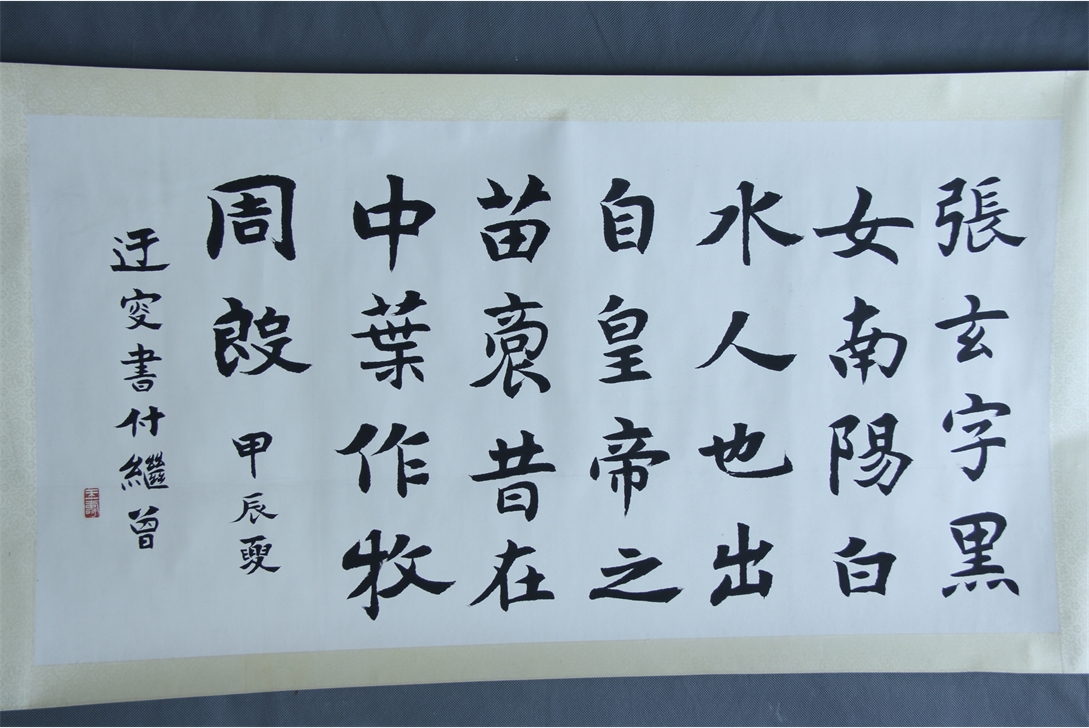 張玄字黑
女南陽白
水人也出
自皇帝之
苗裔昔在
中葉作牧
周殷 甲辰夏
迂叟書付繼曾